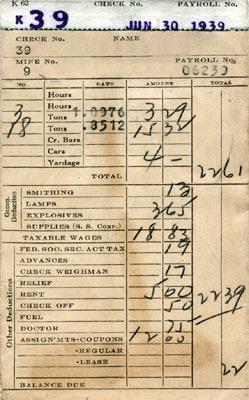 K 62 CHECK NO. PAYROLL NO.
K 39 JUN 30 1939
CHECK NO. NAME
39
MINE NO. PAYROLL NO.
9 06239
NO. RATE AMOUNT
Hours
3 Hours Tons 1.0976 3 29
18 Tons .8512 15 32
Cr. Bars
Cars
Yardage 4 -
TOTAL 22 61
Occup. Deduction
SMITHING 13
LAMPS
EXPLOSIVES 3 65
SUPPLIES (S. S. Corp.)
TAXABLE WAGES 18 83
Other Deductions
FED. SOC. SEC. ACT TAX 19
ADVANCES
CHECK WEIGHMAN 17
RELIEF
RENT 5 00
CHECK OFF 50
22 39
FUEL
DOCTOR 75
ASSIGN'MTS-COUPONS 12 00
-REGULAR
-LEASE
22
BALANCE DUE